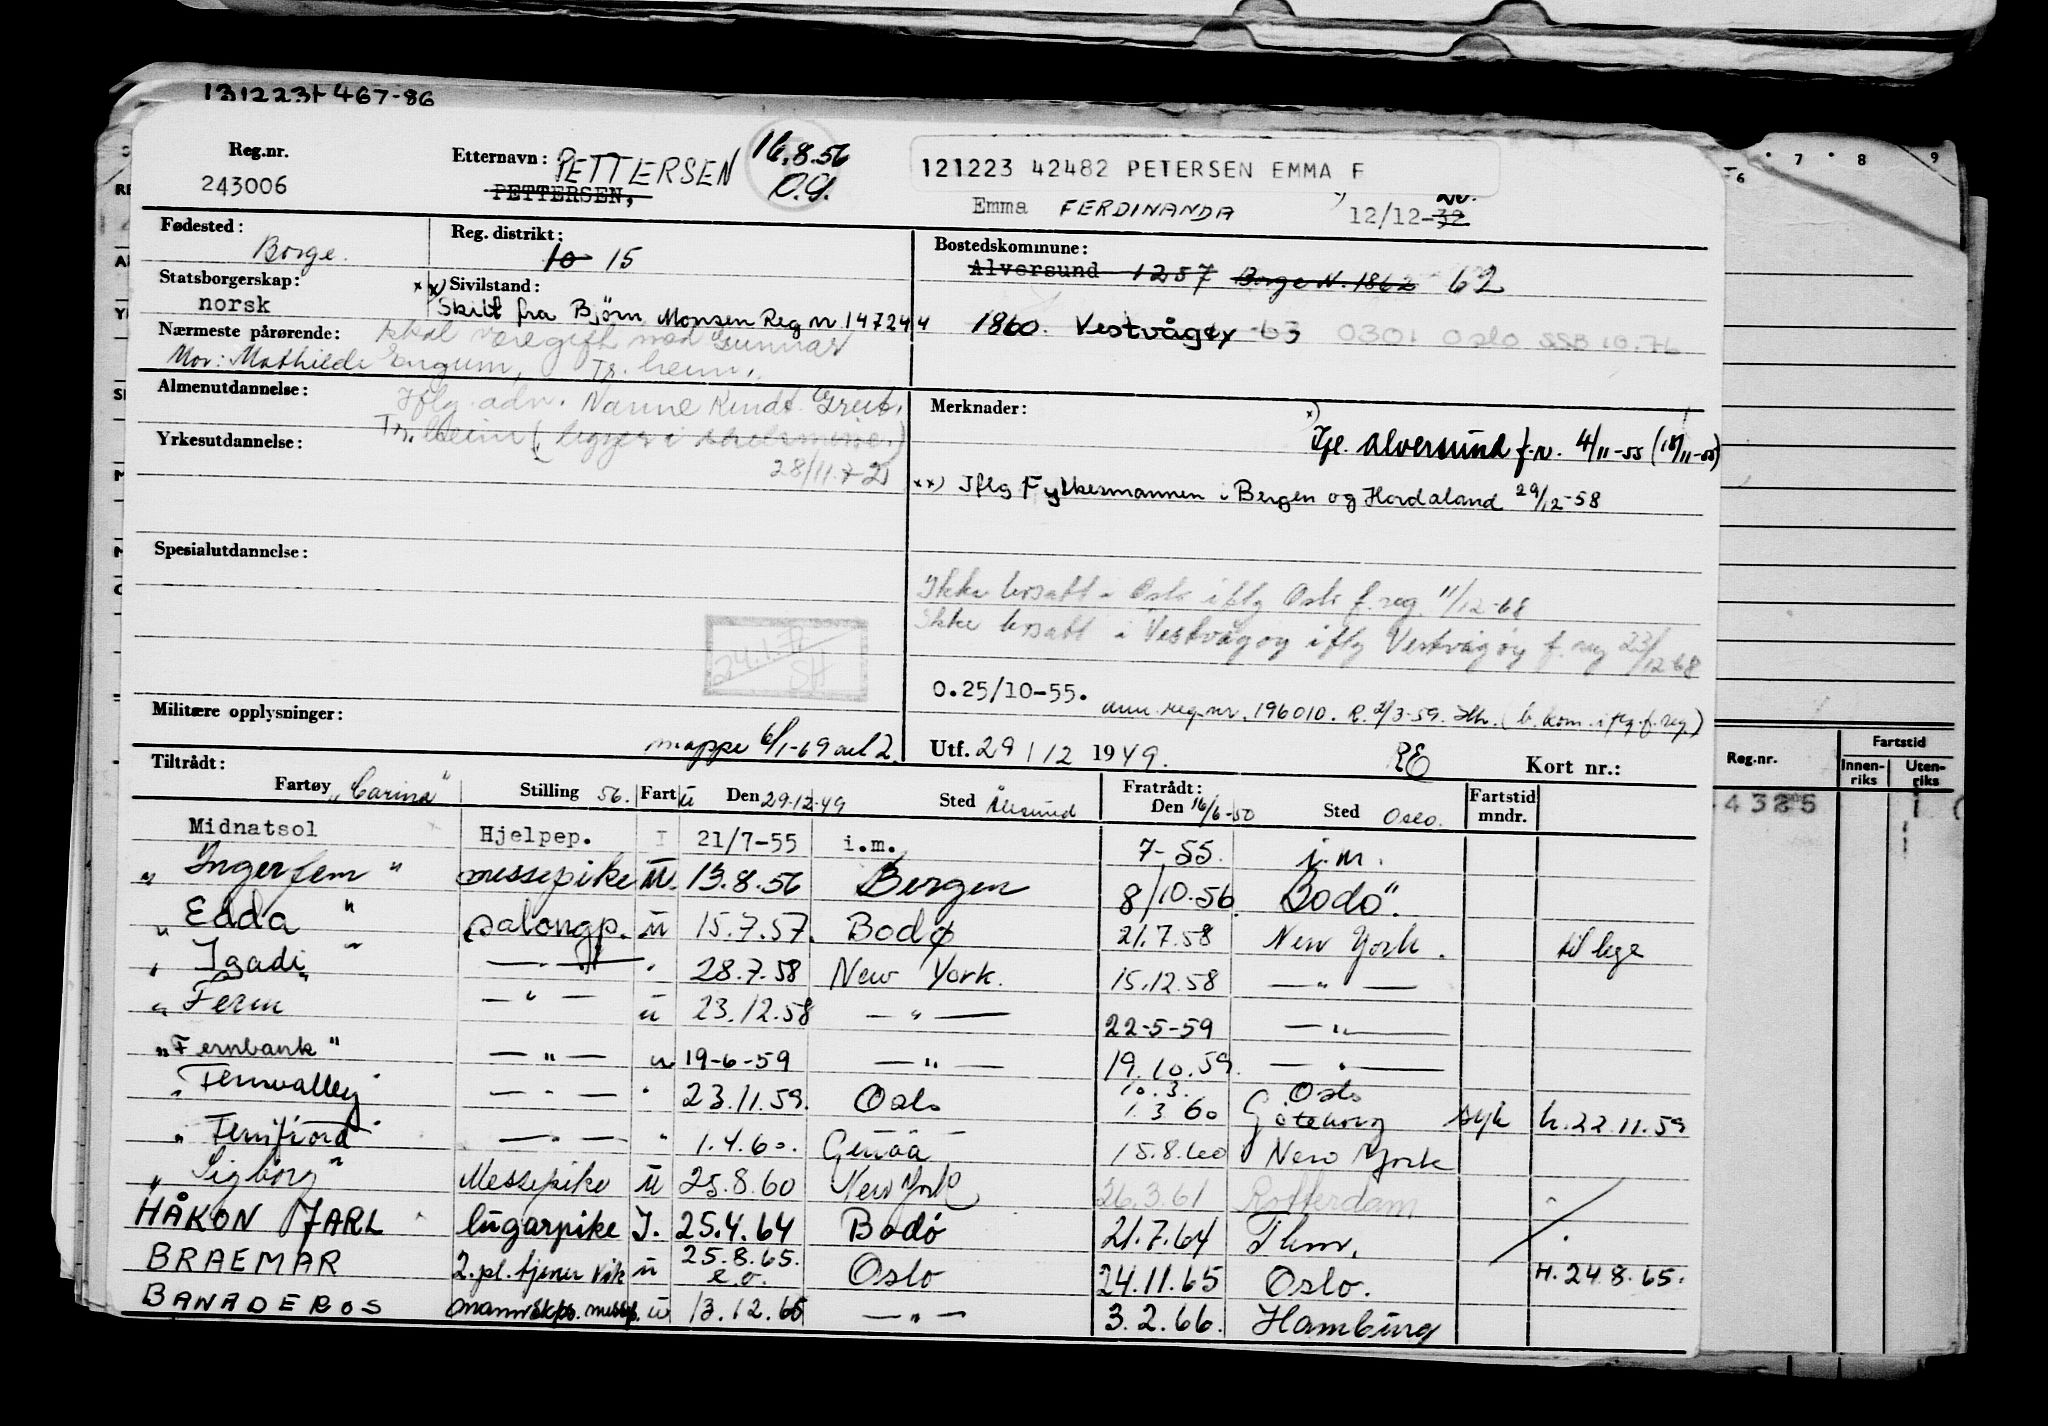 131223+467-86
Reg.nr. Etternavn: PETTERSEN 16.8.56 121223 42482 PETERSEN EMMA F
243006 PETTERSEN, O.G. Emma FERDINANDA 12/12-32
Fødested: Borge. Reg. distrikt: 10 15 Bostedskommune: Alversund 1257 Borge N. 1862 62
Statsborgerskap: norsk xx) Sivilstand: Skilt fra Bjørn Monsen Reg nr 147244 1860. Vestvågøy -63 0301 Oslo SSB 10.76
Nærmeste pårørende: skal være gift med Gunnar
Mor: Mathilde Engum, Tr.heim.
Almenutdannelse: Iflg. adv. Nanne Kindt Greit, Merknader:
Yrkesutdannelse: Tr.heim (ligger i
28/11.72
x) Ifl. Alversund f.r. 4/11-55 (18/11-55)
xx) Iflg Fylkesmannen i Bergen og Hordaland 29/12-58
Spesialutdannelse:
Ikke bosatt i Oslo iflg Oslo f.reg 11/12-68
Ikke bosatt i Vestvågøy iflg Vestvågøy f.reg 23/12-68
24.1.77
SH
O.25/10-55. ann. reg.nr. 196010. R. 2/3-59. (b. kom. iflg. f.reg.)
Militære opplysninger: mappe 6/1-69 avl 2. Utf. 29/12 1949. RE Kort nr.:
Tiltrådt: Fratrådt: Fartstid
Fartøy "Carina" Stilling 56. Fart u Den 29-12-49 Sted Ålesund Den 16/6-50 Sted Oslo. mndr.
Midnatsol Hjelpep. I 21/7-55 i.m. 7-55. i.m.
" Ingerfem " messepike u. 13.8.56 Bergen 8/10.56. Bodø".
" Edda " salongp. u 15.7.57. Bodø 21.7.58 New York. til lege
" Igadi " — " — " 28.7.58 New York. 15.12.58 — " —
" Ferm " — " — u 23.12.58 — " — 22-5-59 — " —
"Fernbank" — " — u 19-6-59 — " 19.10.59. — " —
" Fernvalley " — " — " 23.11.59. Oslo 10.3. Oslo
1.3 60 Göteborg syk h. 22.11.59
" Fernfiord " — " — " 1.4.60. Genua 15.8.60 New York
" Sigborg " Messepike u 25.8.60 New York 26.3.61 Rotterdam
HÅKON JARL lugarpike I. 25.4.64 Bodø 21.7.64 Thm.
BRAEMAR 2.pl.tjener vik u 25.8.65. e.o. Oslo 24.11.65 Oslo. H. 24.8.65.
BANADEROS mannskps. messep. u 13.12.65 — " — 3.2.66. Hamburg
7 8 9
6
Reg.nr. Fartstid
Innenriks Utenriks
4325